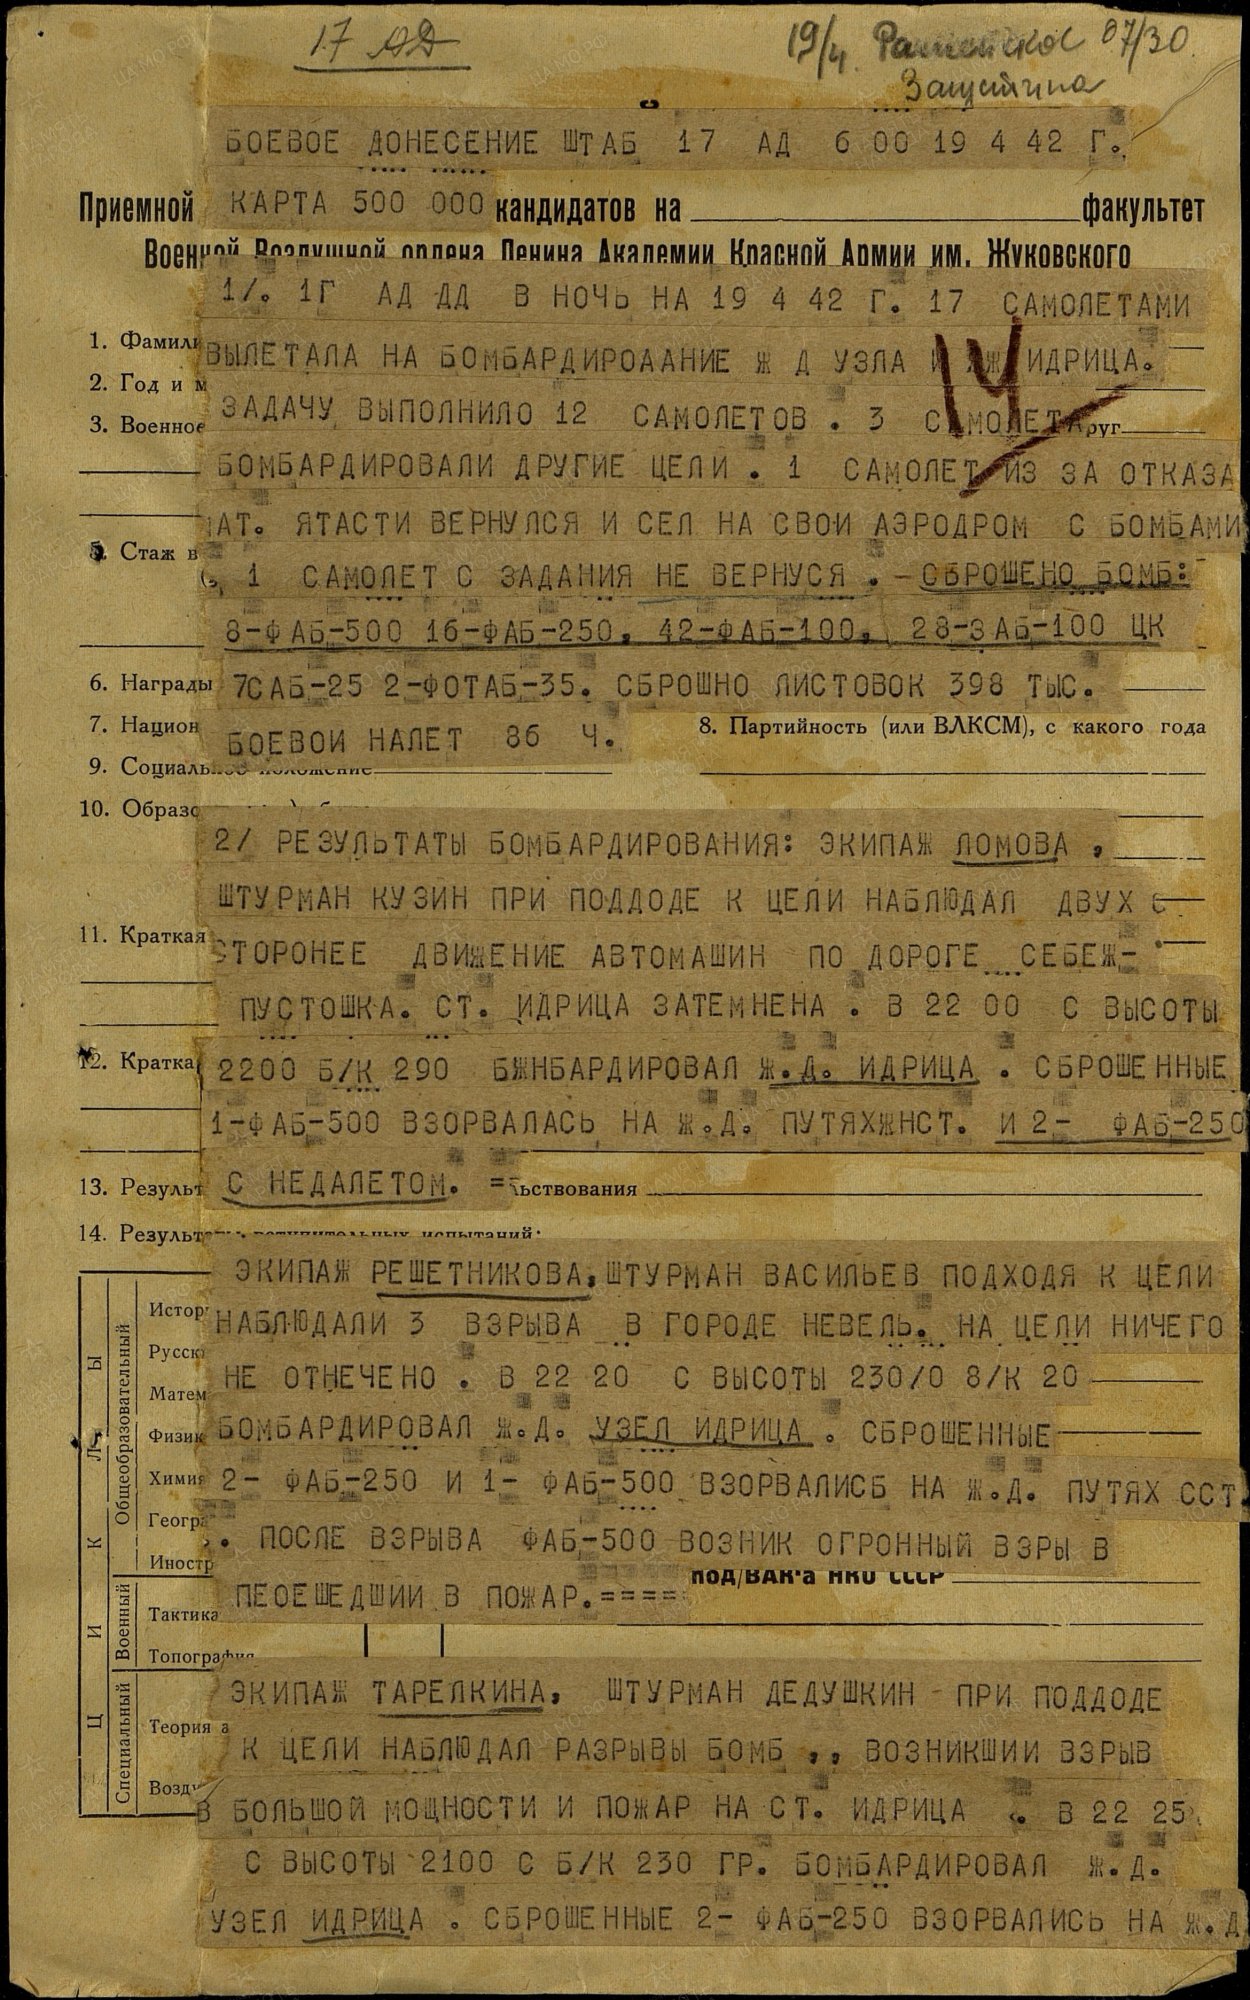 17 АД
19/4. 07/30
БОЕВОЕ ДОНЕСЕНИЕ ШТАБ 17 АД 6 00 19 4 42 Г.
Приемной КАРТА 500 000 кандидатов на факультет
Военной Воздушной ордена Ленина Академии Красной Армии им. Жуковского
1/. 1Г АД ДД В НОЧЬ НА 19 4 42 Г. 17 САМОЛЕТАМИ
1. Фамили
ВЫЛЕТАЛА НА БОМБАРДИРОААНИЕ Ж Д УЗЛА И ЖЖ ИДРИЦА.
14
2. Год и м
ЗАДАЧУ ВЫПОЛНИЛО 12 САМОЛЕТОВ . 3 САМОЛЕТА
3. Военное руг
БОМБАРДИРОВАЛИ ДРУГИЕ ЦЕЛИ . 1 САМОЛЕТ ИЗ ЗА ОТКАЗА
АТ. ЯТАСТИ ВЕРНУЛСЯ И СЕЛ НА СВОИ АЭРОДРОМ С БОМБАМИ
5. Стаж в
1 САМОЛЕТ С ЗАДАНИЯ НЕ ВЕРНУСЯ . – СБРОШЕНО БОМБ:
8-ФАБ-500 16-ФАБ-250, 42-ФАБ-100, 28-ЗАБ-100 ЦК
6. Награды 7САБ-25 2-ФОТАБ-35. СБРОШНО ЛИСТОВОК 398 ТЫС.
7. Национ 8. Партийность (или ВЛКСМ), с какого года
БОЕВОИ НАЛЕТ 86 Ч.
9. Социальное положение
10. Образо
2/ РЕЗУЛЬТАТЫ БОМБАРДИРОВАНИЯ: ЭКИПАЖ ЛОМОВА ,
ШТУРМАН КУЗИН ПРИ ПОДДОДЕ К ЦЕЛИ НАБЛЮДАЛ ДВУХ С
11. Краткая
СТОРОНЕЕ ДВИЖЕНИЕ АВТОМАШИН ПО ДОРОГЕ СЕБЕЖ-
ПУСТОШКА. СТ. ИДРИЦА ЗАТЕМНЕНА . В 22 00 С ВЫСОТЫ
12. Кратка 2200 Б/К 290 БЖНБАРДИРОВАЛ Ж.Д. ИДРИЦА . СБРОШЕННЫЕ
1-ФАБ-500 ВЗОРВАЛАСЬ НА Ж.Д. ПУТЯХЖНСТ. И 2- ФАБ-250
13. Результ С НЕДАЛЕТОМ. = ьствования
14. Результаты вступительных испытаний:
ЭКИПАЖ РЕШЕТНИКОВА,ШТУРМАН ВАСИЛЬЕВ ПОДХОДЯ К ЦЕЛИ
Истор
НАБЛЮДАЛИ 3 ВЗРЫВА В ГОРОДЕ НЕВЕЛЬ. НА ЦЕЛИ НИЧЕГО
Русск
НЕ ОТНЕЧЕНО . В 22 20 С ВЫСОТЫ 230/0 8/К 20
Матем
БОМБАРДИРОВАЛ Ж.Д. УЗЕЛ ИДРИЦА . СБРОШЕННЫЕ
Физик
2- ФАБ-250 И 1- ФАБ-500 ВЗОРВАЛИСБ НА Ж.Д. ПУТЯХ ССТ.
Химия
Геогра
. ПОСЛЕ ВЗРЫВА ФАБ-500 ВОЗНИК ОГРОННЫЙ ВЗРЫ В
Иностр
под/ВАК'а НКО СССР
ПЕОЕШЕДШИИ В ПОЖАР.====
Тактика
Топография
ЭКИПАЖ ТАРЕЛКИНА, ШТУРМАН ДЕДУШКИН ПРИ ПОДДОДЕ
Теория а
К ЦЕЛИ НАБЛЮДАЛ РАЗРЫВЫ БОМБ ,, ВОЗНИКШИИ ВЗРЫВ
Возду
В БОЛЬШОЙ МОЩНОСТИ И ПОЖАР НА СТ. ИДРИЦА . В 22 25
С ВЫСОТЫ 2100 С Б/К 230 ГР. БОМБАРДИРОВАЛ Ж.Д.
УЗЕЛ ИДРИЦА . СБРОШЕННЫЕ 2- ФАБ-250 ВЗОРВАЛИСЬ НА Ж.Д
ЦИКЛЫ
Общеобразовательный
Военный
Специальный